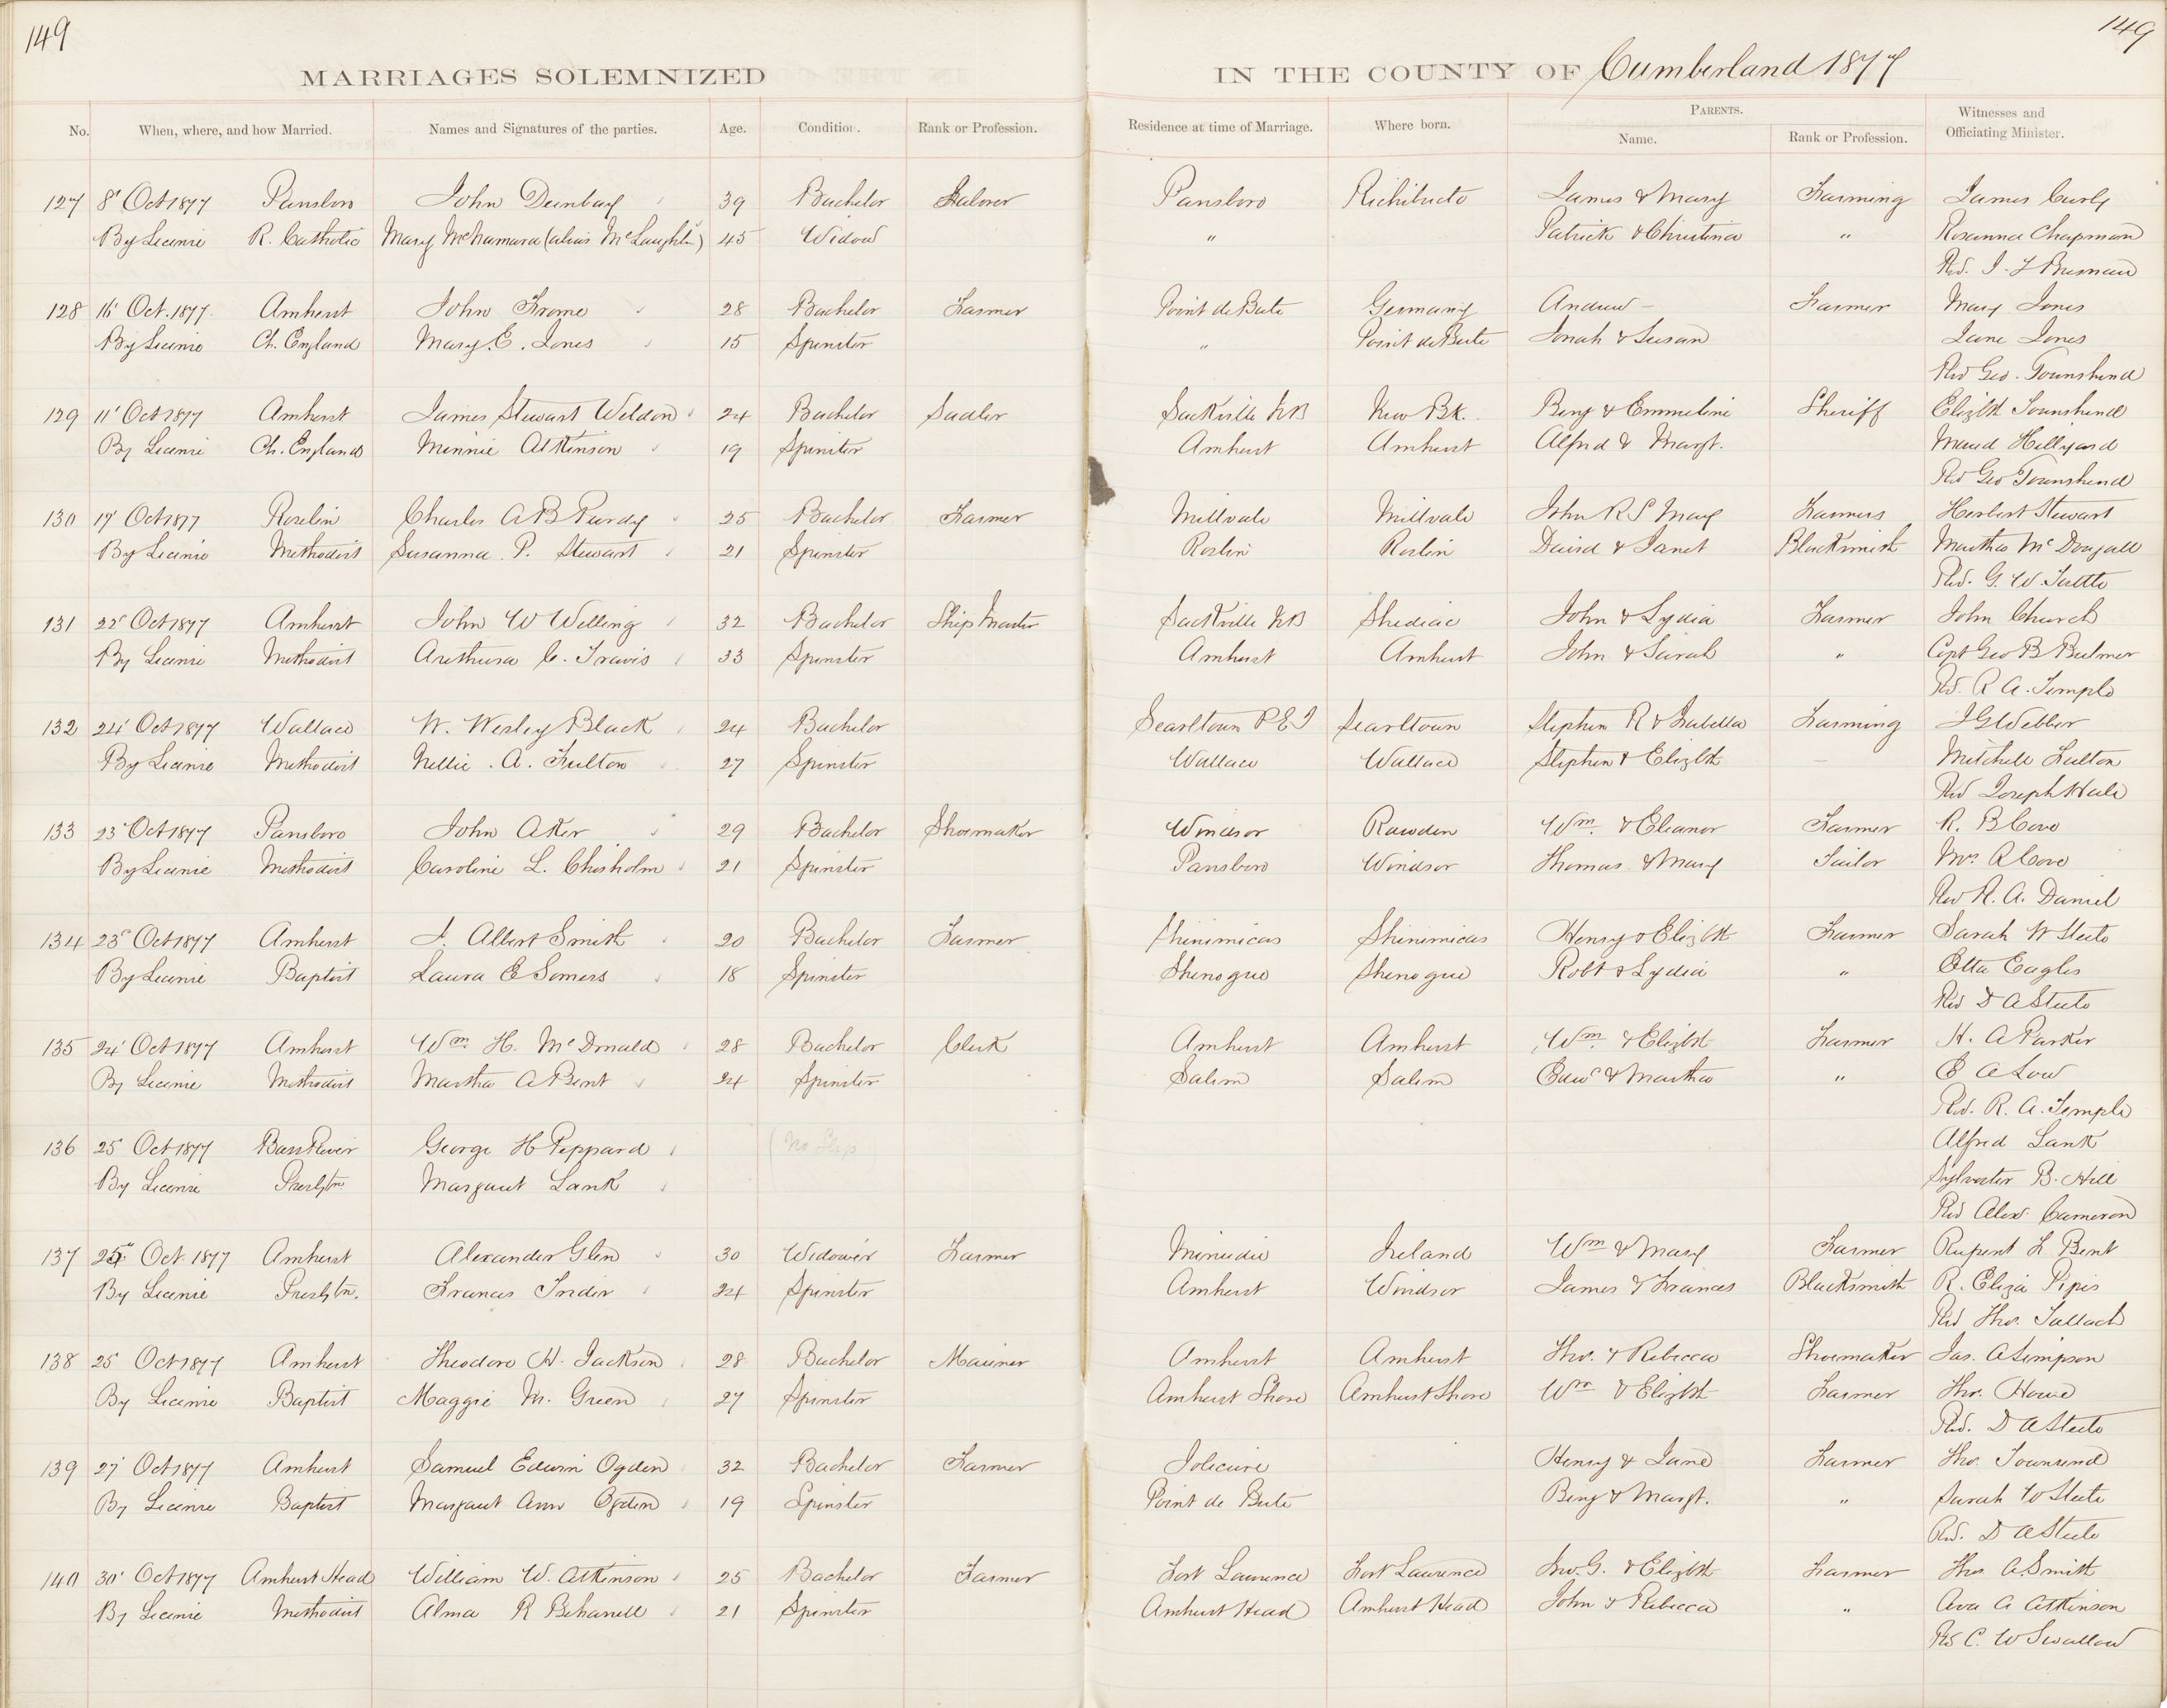 149
149
MARRIAGES SOLEMNIZED IN THE COUNTY OF Cumberland 1877
No. When, where, and how Married. Names and Signatures of the parties. Age. Condition. Rank or Profession. Residence at time of Marriage. Where born. PARENTS. Name. Rank or Profession. Witnesses and Officiating Minister.
127 8' Oct 1877 Parrsboro John Dunbar 39 Bachelor Parrsboro Richibucto James & Mary Farming James Curly
By Licence R. Catholic Mary McNamara (alias McLaughlin) 45 Widow " Patrick & Christina " Rosanna Chapman
Rev.
128 16' Oct. 1877. Amherst John Frome 28 Bachelor Farmer Point de Bute Germany Andrew - Farmer Mary Jones
By Licence Ch. England Mary. E. Jones 15 Spinster " Point de Bute Jonah & Susan Jane Jones
Rev Geo. Townshend
129 11' Oct 1877 Amherst James Stewart Weldon 24 Bachelor Sadler Sackville NB New Bk. Benj & Emmeline Sheriff Elizbth Townshend
By Licence Ch. England Minnie Atkinson 19 Spinster Amherst Amherst Alfred & Margt. Maud Hillyard
Rev Geo Townshend
130 17' Oct 1877 Roslin Charles A B Purdy 25 Bachelor Farmer Millvale Millvale John R S Mary Farmers Herbert Stewart
By Licence Methodist Susanna. P. Stewart 21 Spinster Roslin Roslin David & Janet Blacksmith Martha McDougall
Rev. G. W. Tuttle
131 22' Oct 1877 Amherst John W Welling 32 Bachelor Ship Master Sackville NB Shediac John & Lydia Farmer John Church
By Licence Methodist Arethusa C. Travis 33 Spinster Amherst Amherst John & Sarah " Capt Geo B Bulmer
Rev. R A. Temple
132 24' Oct 1877 Wallace W. Wesley Black 24 Bachelor Searltown P E I Searltown Stephen R & Isabella Farming J G Webber
By Licence Methodist Nellie. A. Fulton 27 Spinster Wallace Wallace Stephen & Elizbth — Mitchell Fulton
Rev Joseph Hale
133 23' Oct 1877 Parrsboro John Aker 29 Bachelor Shoemaker Windsor Rawdon Wm. & Eleanor Farmer R. B Cove
By Licence Methodist Caroline L. Chisholm 21 Spinster Parrsboro Windsor Thomas & Mary Tailor Mrs. A Cove
Rev R. A. Daniel
134 23' Oct 1877 Amherst J. Albert Smith 20 Bachelor Farmer Shinimicas Shinimicas Henry & Elizbth Farmer Sarah W Steele
By Licence Baptist Laura E Somers 18 Spinster Shenogue Shenogue Robt & Lydia " Etta Eagles
Rev D A Steele
135 24' Oct 1877 Amherst Wm H. McDonald 28 Bachelor Clerk Amherst Amherst Wm. & Elizbth Farmer H. A Parker
By Licence Methodist Martha A Bent 24 Spinster Salem Salem Edwd & Martha " E A Low
Rev. R. A. Temple
136 25 Oct 1877 Bass River George H Peppard (No Slip) Alfred Lank
By Licence Presbytn. Margaret Lank Sylvester B. Hill
Rev Alex. Cameron
137 25' Oct. 1877 Amherst Alexander Glen 30 Widower Farmer Minudie Ireland Wm & Mary Farmer Rupert L. Bent
By Licence Presbytn. Frances Trider 24 Spinster Amherst Windsor James & Frances Blacksmith R. Eliza Pipes
Rev Thos. Tallach
138 25' Oct 1877 Amherst Theodore H. Jackson 28 Bachelor Mariner Amherst Amherst Thos. & Rebecca Shoemaker Jas. A Simpson
By Licence Baptist Maggie M. Green 27 Spinster Amherst Shore Amherst Shore Wm & Elizbth Farmer Thos. Howe
Rev. D A Steele
139 27' Oct 1877 Amherst Samuel Edwin Ogden 32 Bachelor Farmer Jolicure Henry & Jane Farmer Thos. Townsend
By Licence Baptist Margaret Ann Ogden 19 Spinster Point de Bute Benj & Margt. " Sarah W Steele
Rev. D A Steele
140 30' Oct 1877 Amherst Head William W. Atkinson 25 Bachelor Farmer Fort Lawrence Fort Lawrence Jno. G. & Elizbth Farmer Thos A. Smith
By Licence Methodist Alma R Bihanell 21 Spinster Amherst Head Amherst Head John & Rebecca " Ava A Atkinson
Rev C. W Swallow